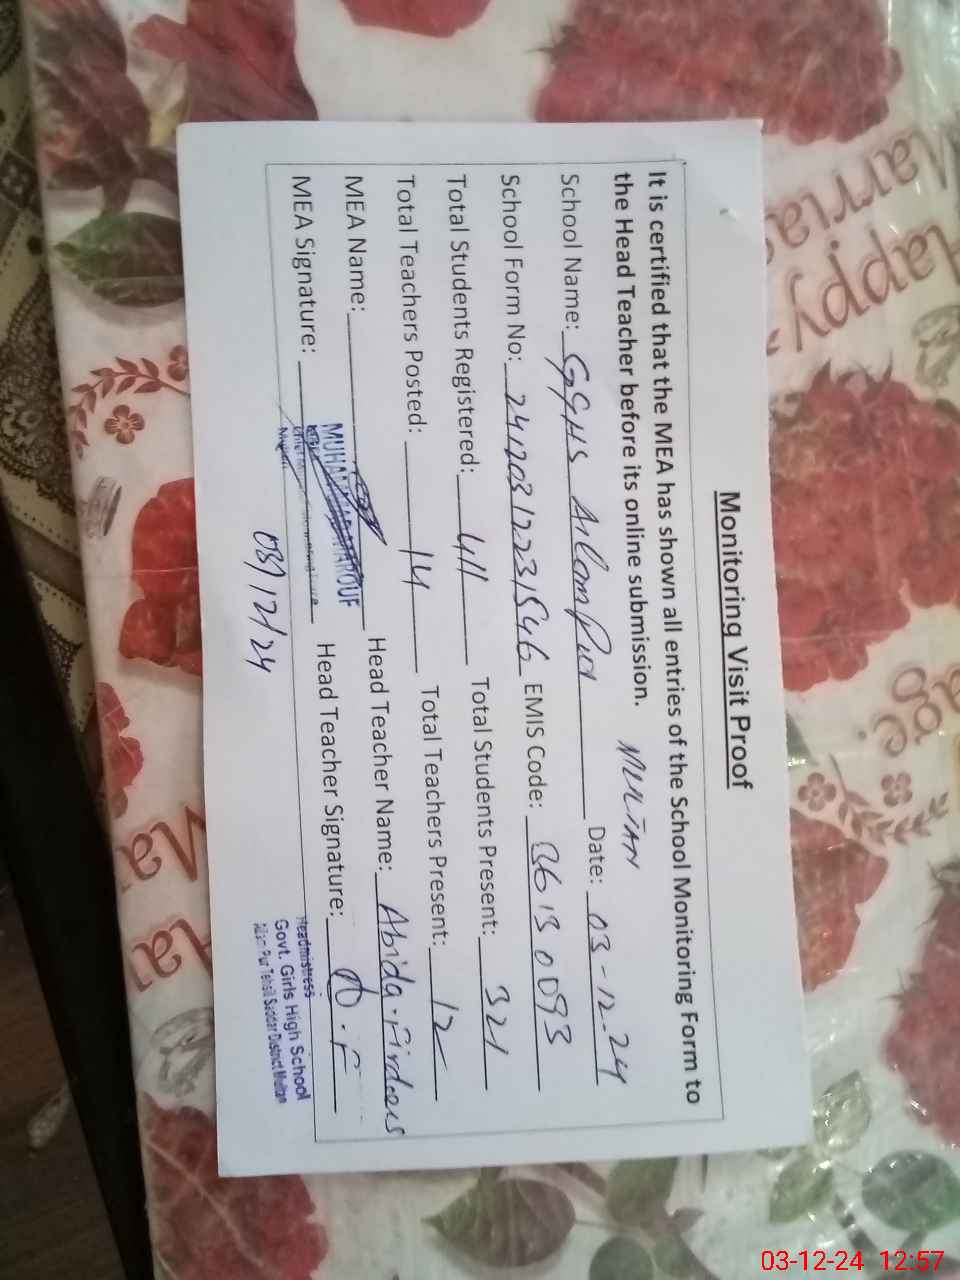 Monitoring Visit Proof
It is certified that the MEA has shown all entries of the School Monitoring Form to
the Head Teacher before its online submission. MULTAN
School Name: GGHS Alampur Date: 03-12-24
School Form No: 241203122315546 EMIS Code: 36130093
Total Students Registered: 411 Total Students Present: 321
Total Teachers Posted: 14 Total Teachers Present: 12
MEA Name: Head Teacher Name: Abida Firdous
MEA Signature: Head Teacher Signature: A.F
03/12/24
Headmistress
Govt. Girls High School
Pur Tehsil Saddar District Multan
Happy
Marriage
03-12-24 12:57